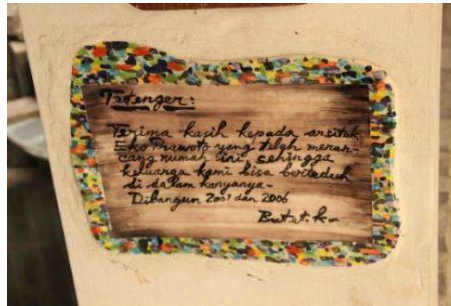 Tetenger:
Terima kasih kepada arsitek
Eko Prawoto yang telah meran-
cang rumah ini, sehingga
keluarga kami bisa berteduh
di dalam karyanya-
Dibangun 2001 dan 2006
Butet. k-